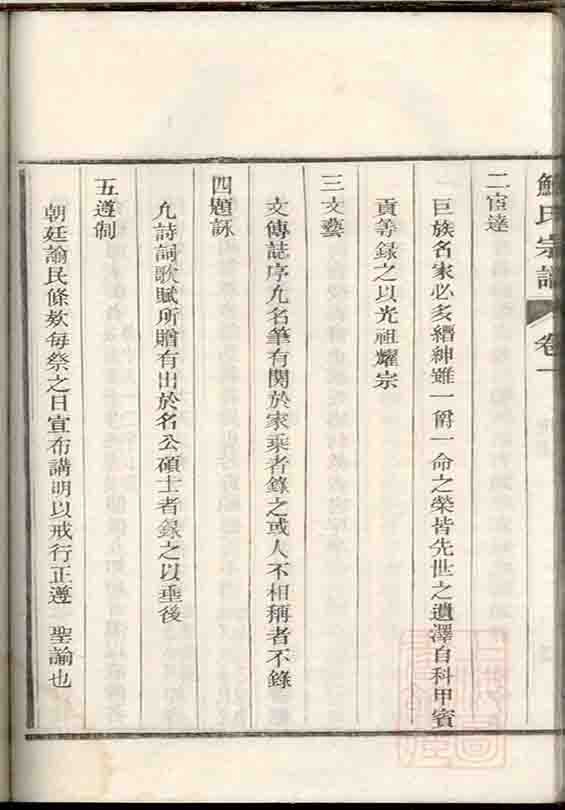 鮑氏宗譜 卷一
二宦達
巨族名家必多縉紳雖一爵一命之榮皆先世之遺澤自科甲賓
貢等錄之以光祖耀宗
三文藝
文傳誌序凢名筆有関於家乘者錄之或人不相稱者不錄
四題詠
凢詩詞歌賦所贈有出於名公碩士者錄之以垂後
五遵制
朝廷諭民條欵每祭之日宣布講明以戒行正遵 聖諭也